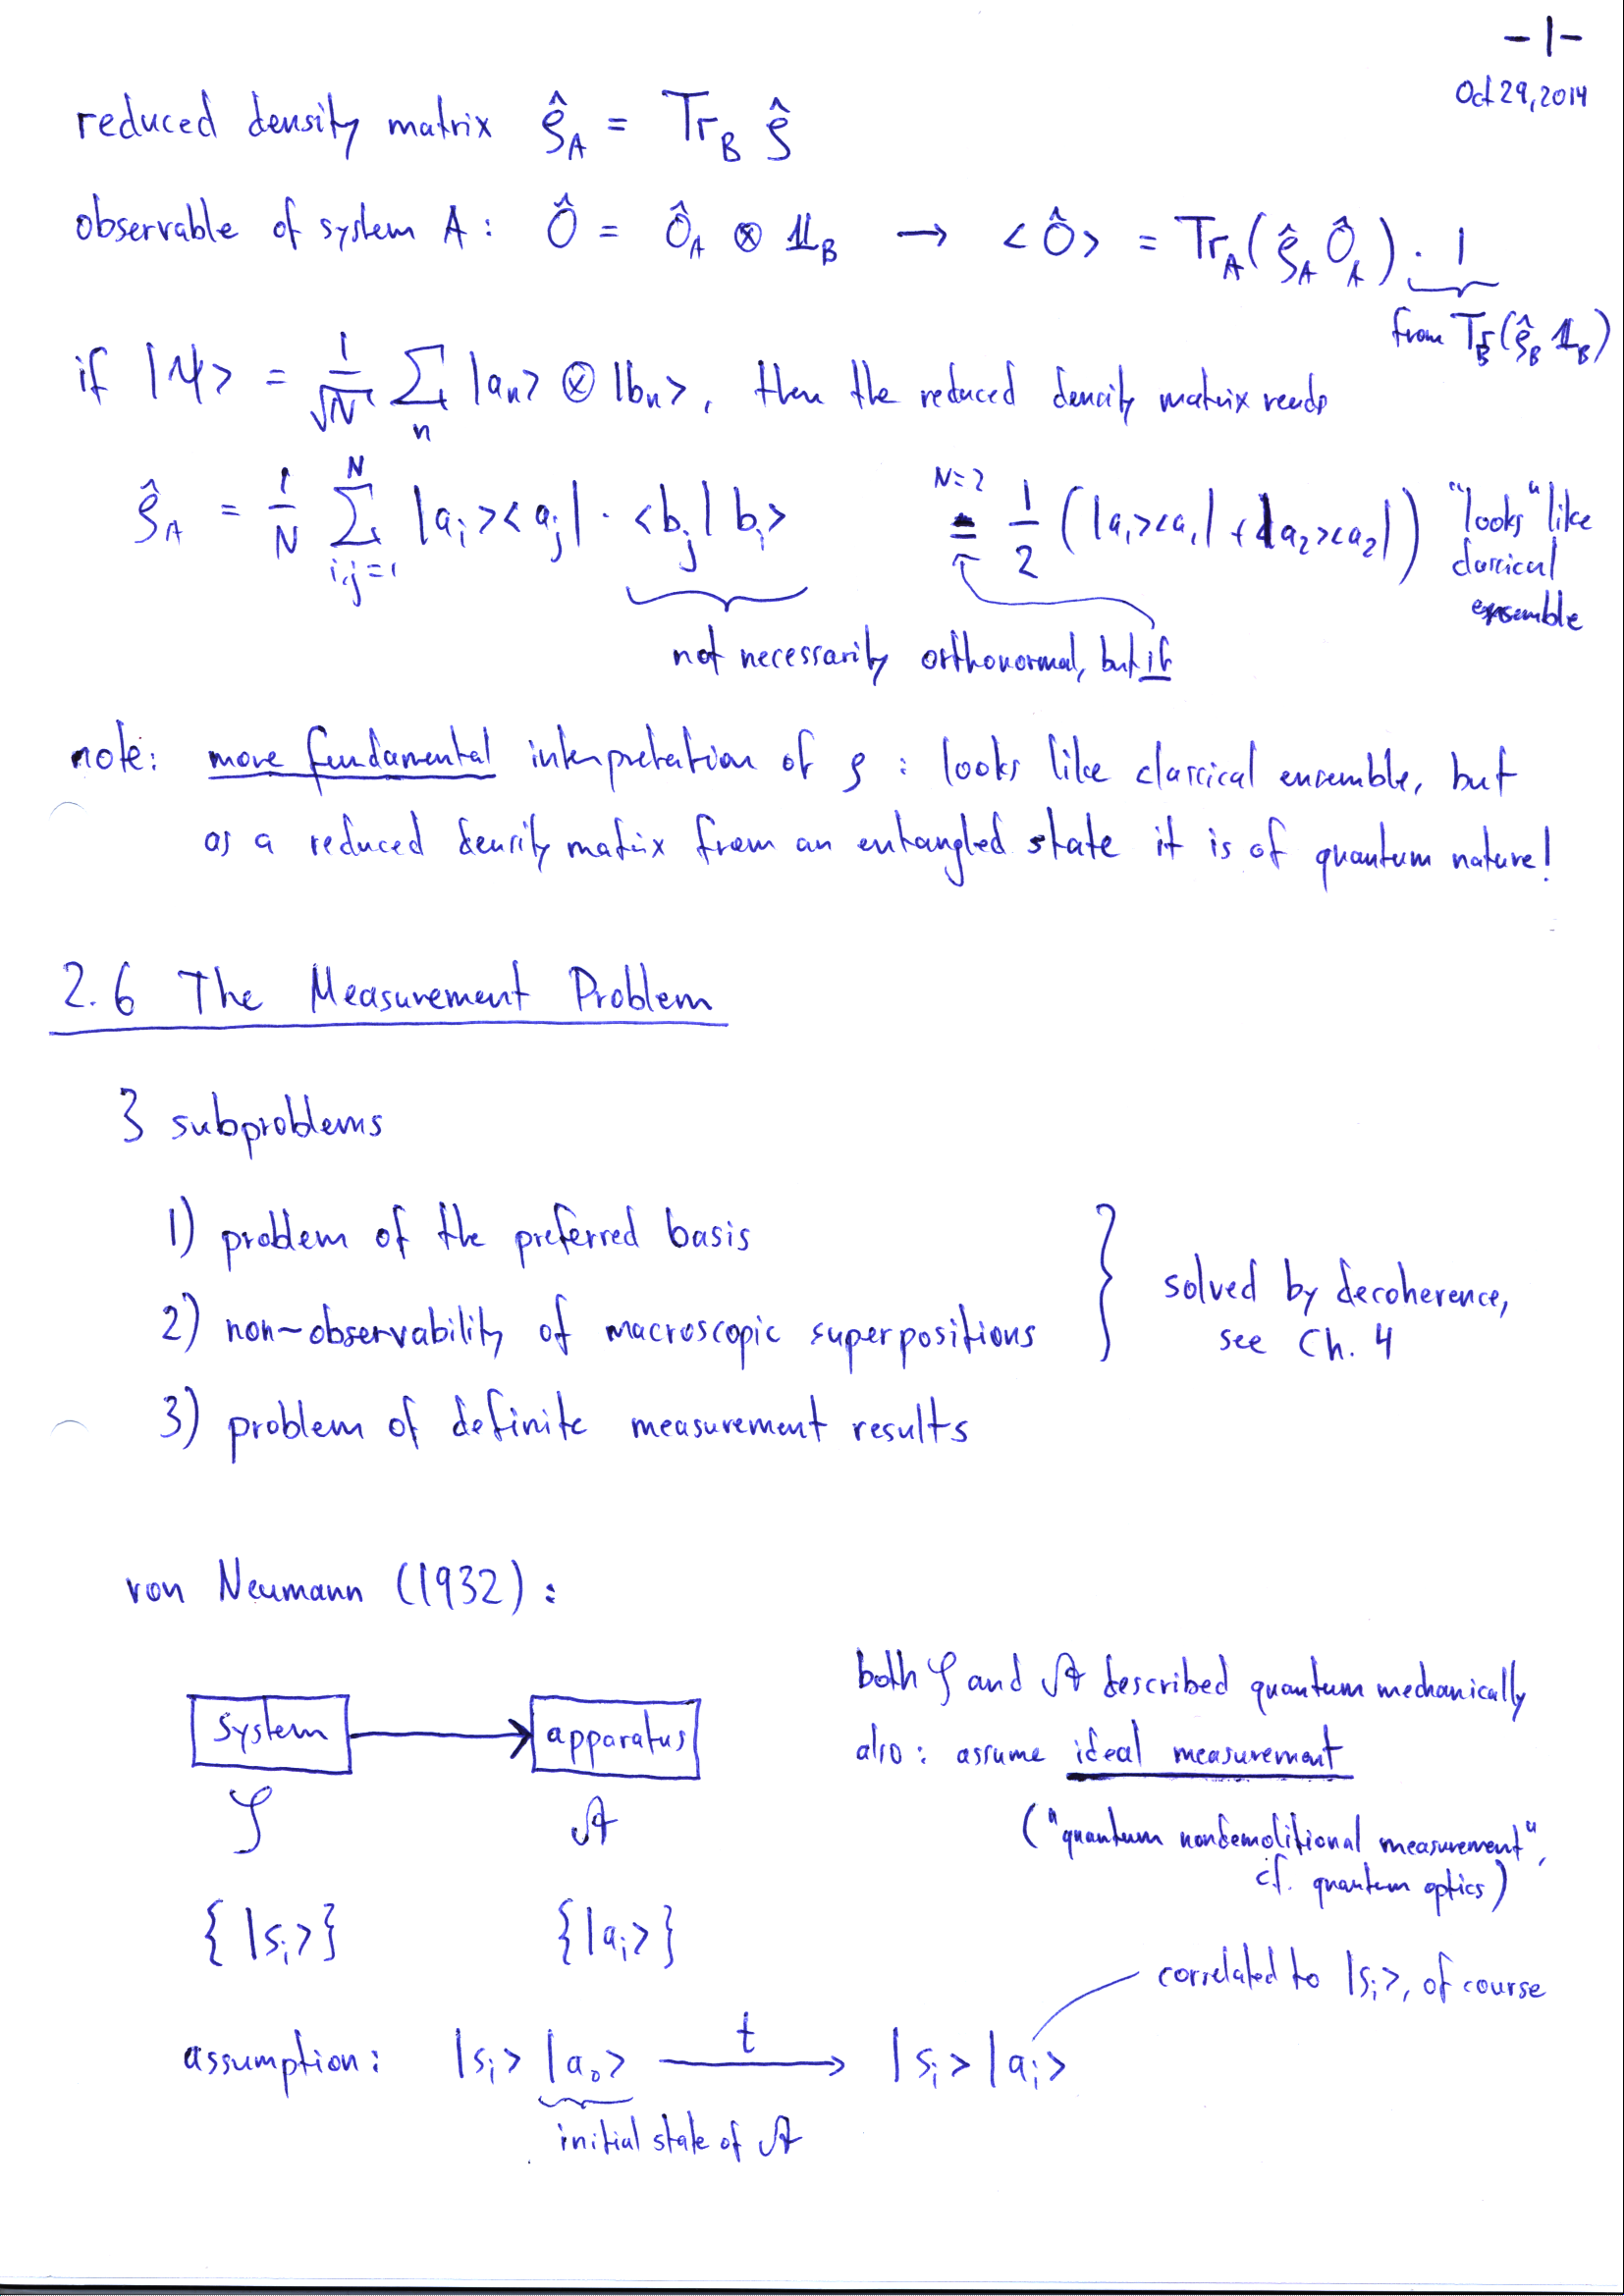 -1-
Oct 29, 2014
reduced density matrix ρ̂_A = Tr_B ρ̂
observable of system A: Ô = Ô_A ⊗ 𝟙_B → <Ô> = Tr_A(ρ̂_A Ô_A) · 1
from Tr_B(ρ̂_B 𝟙_B)
if |ψ> = 1/√N ∑_n |a_n> ⊗ |b_n>, then the reduced density matrix reads
ρ̂_A = 1/N ∑_{i,j=1}^N |a_i><a_j| · <b_j|b_i> N=2 = 1/2 (|a_1><a_1| + |a_2><a_2|) "looks" like
classical
ensemble
not necessarily orthonormal, but if
note: more fundamental interpretation of ρ : looks like classical ensemble, but
as a reduced density matrix from an entangled state it is of quantum nature!
2.6 The Measurement Problem
3 subproblems
1) problem of the preferred basis
2) non-observability of macroscopic superpositions
solved by decoherence,
see Ch. 4
3) problem of definite measurement results
von Neumann (1932):
system → apparatus
𝒮 𝒜
both 𝒮 and 𝒜 described quantum mechanically
also: assume ideal measurement
("quantum nondemolitional measurement",
cf. quantum optics)
{|s_i>} {|a_i>}
correlated to |s_i>, of course
assumption: |s_i> |a_0> —t→ |s_i> |a_i>
initial state of 𝒜